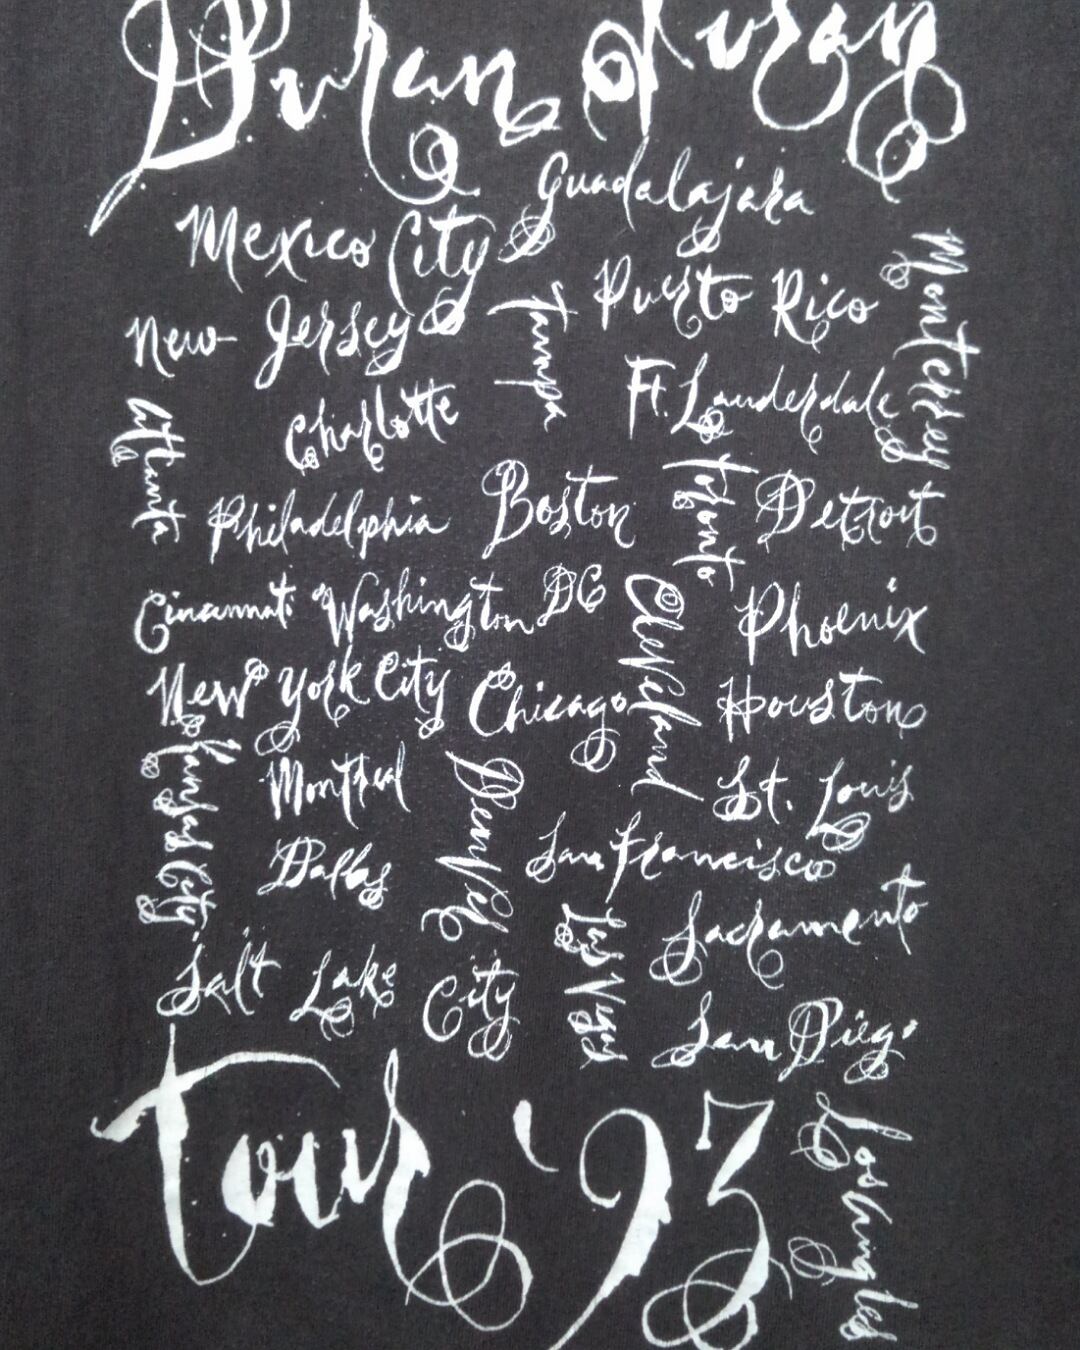 Duran Duran
Guadalajara
Mexico City
Monterrey
Puerto Rico
New Jersey
Tampa
Ft. Lauderdale
Charlotte
Atlanta
Toronto
Philadelphia
Boston
Detroit
Cincinnati
Washington DC
Cleveland
Phoenix
New York City
Chicago
Houston
Kansas City
Montreal
Denver
St. Louis
Dallas
San Francisco
Las Vegas
Sacramento
Salt Lake City
San Diego
Los Angeles
Tour '93